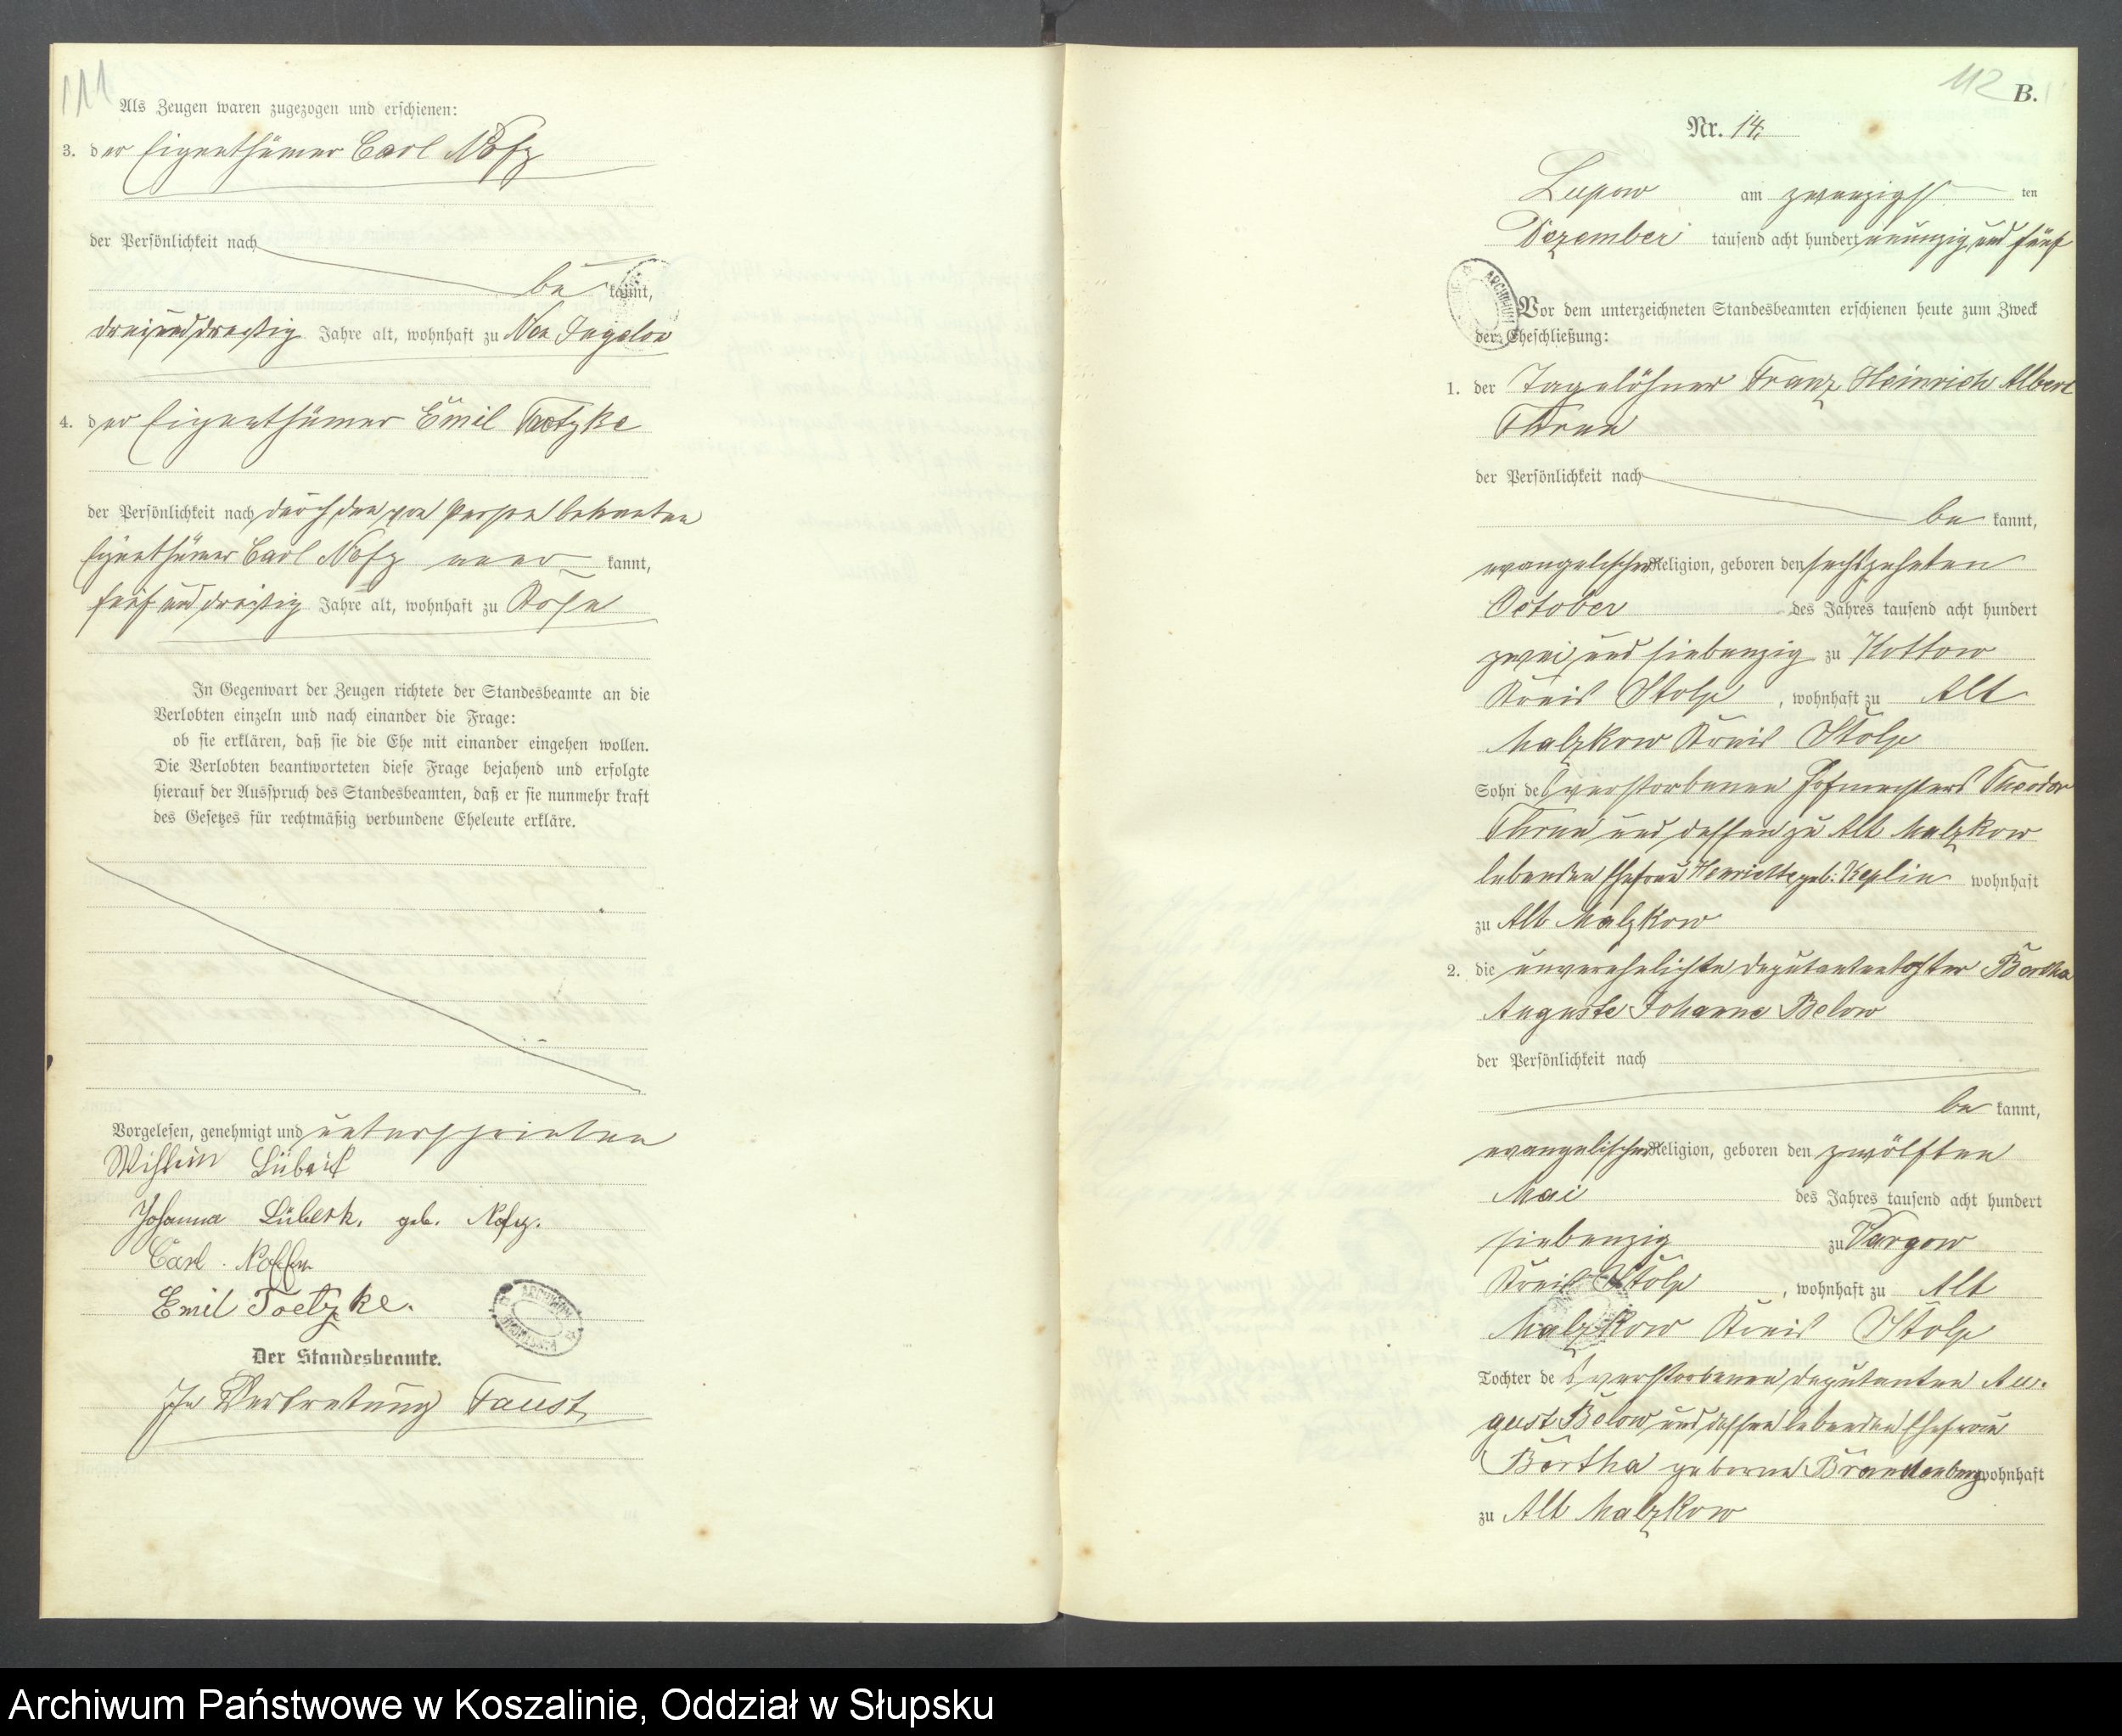 111
Als Zeugen waren zugezogen und erschienen:
3. der Eigenthümer Carl Nofz
der Persönlichkeit nach
be kannt,
dreiunddreißig Jahre alt, wohnhaft zu Neu Jugelow
4. der Eigenthümer Emil Toetzke
der Persönlichkeit nach durch den von Person bekannten
Eigenthümer Carl Nofz aner kannt,
fünf und dreißig Jahre alt, wohnhaft zu
In Gegenwart der Zeugen richtete der Standesbeamte an die
Verlobten einzeln und nach einander die Frage:
ob sie erklären, daß sie die Ehe mit einander eingehen wollen.
Die Verlobten beantworteten diese Frage bejahend und erfolgte
hierauf der Ausspruch des Standesbeamten, daß er sie nunmehr kraft
des Gesetzes für rechtmäßig verbundene Eheleute erkläre.
Vorgelesen, genehmigt und unterschrieben
Johanna Lübeck, geb. Nofz.
Carl
Emil Toetzke.
Der Standesbeamte.
In Vertretung Faust
112
B.
Nr. 14.
Lupow am zwanzigsten
Dezember tausend acht hundert neunzig und fünf
Vor dem unterzeichneten Standesbeamten erschienen heute zum Zweck
der Eheschließung:
1. der Tagelöhner Franz Heinrich Albert
Thrun
der Persönlichkeit nach
be kannt,
evangelischer Religion, geboren den sechszehnten
October des Jahres tausend acht hundert
zwei und siebenzig zu Kottow
Kreis Stolp, wohnhaft zu Alt
Malzkow Kreis Stolp
Sohn des verstorbenen Hofmeisters Theodor
Thrun und dessen zu Alt Malzkow
lebenden Ehefrau Henriette geb: Keplin wohnhaft
zu Alt Malzkow
2. die unverehelichte Deputantentochter Bertha
Auguste Johanne Below
der Persönlichkeit nach
be kannt,
evangelischer Religion, geboren den zwölften
Mai des Jahres tausend acht hundert
siebenzig zu Vargow
Kreis Stolp, wohnhaft zu Alt
Malzkow Kreis Stolp
Tochter des verstorbenen Deputanten Au-
gust Below und dessen lebenden Ehefrau
Bertha geborne Brandenburg wohnhaft
zu Alt Malzkow
Archiwum Państwowe w Koszalinie, Oddział w Słupsku